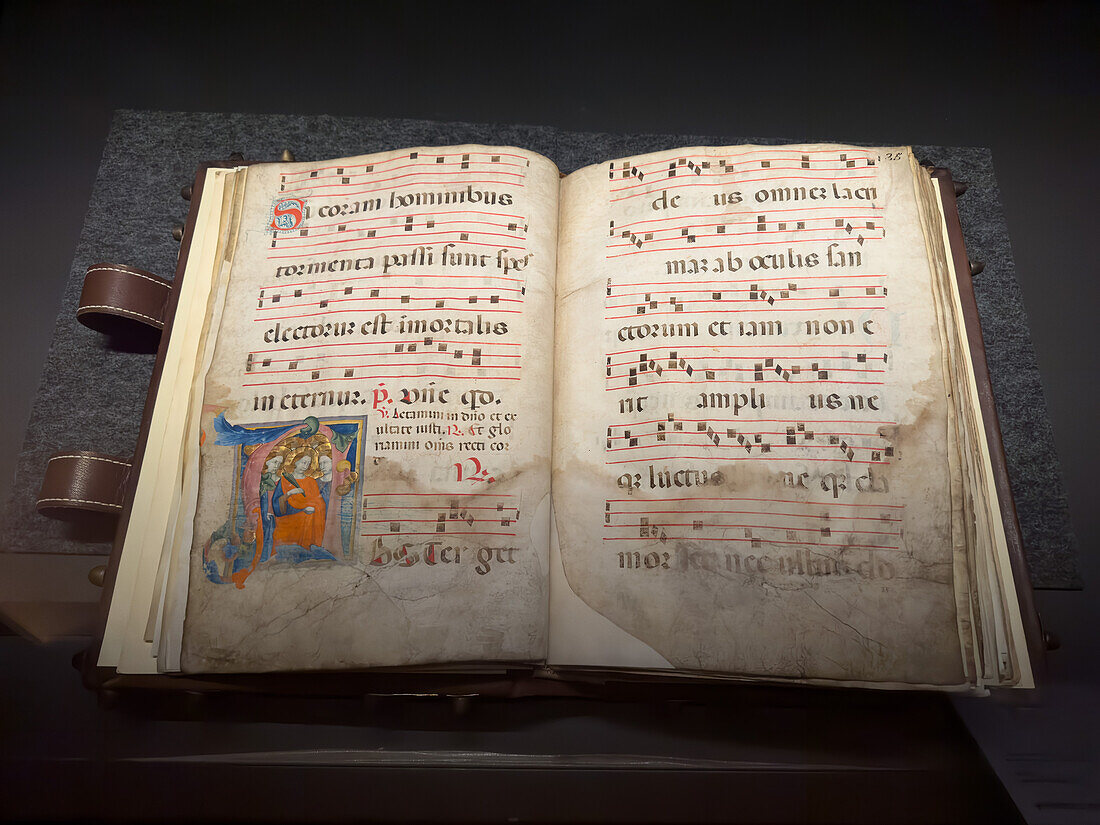 Si coram hominibus
tormenta passi sunt spes
electorur est imortalis
in eternur. p̄. Vn̄e qo.
V. Letamini in dn̄o et ex
ultate iusti. R. Et glo
riamini om̄s recti cor
d
R.
AbSTerget
35
de us omner lacri
mar ab oculis san
ctorum et iam non e
rit ampli us ne
qr luctus ne qr cla
mor sec nec ullus do